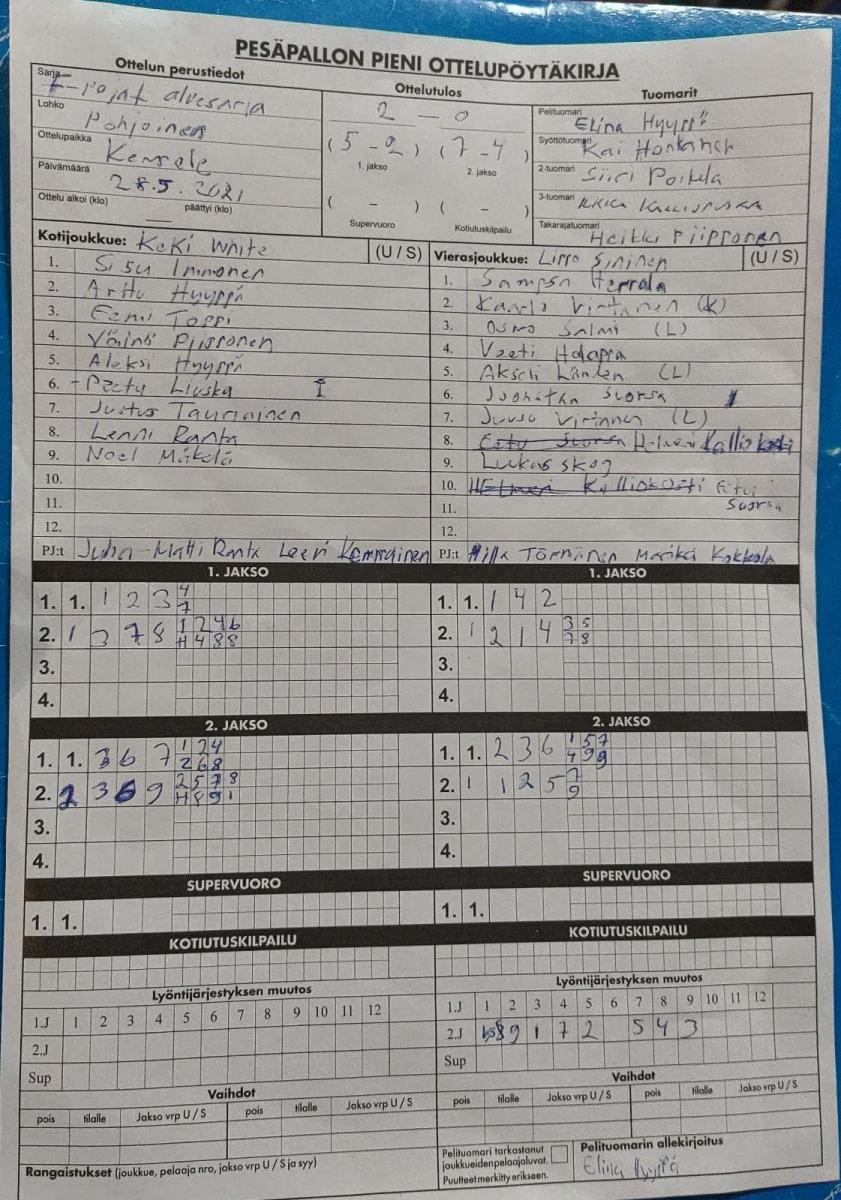 PESÄPALLON PIENI OTTELUPÖYTÄKIRJA
Ottelun perustiedot
Sarja F-pojat aluesarja
Lohko Pohjoinen
Ottelupaikka Kempele
Päivämäärä 28.5.2021
Ottelu alkoi (klo) päättyi (klo)
Ottelutulos
2 - 0
(5 - 2) (7 - 4)
1. jakso 2. jakso
( - ) ( - )
Supervuoro Kotiutuskilpailu
Tuomarit
Pelituomari Elina Hyyppä
Syöttötuomari Kai Honkanen
2-tuomari Siiri Poikela
3-tuomari Ilkka
Takarajatuomari Heikki Piipponen
Kotijoukkue: KeKi White (U / S)
1. Sisu Immonen
2. Arttu Hyyppä
3. Eemi Toppi
4. Väinö Piipponen
5. Aleksi Hyyppä
6. Peetu Liuska
7. Justus Tauriainen
8. Lenni Ranta
9. Noel Mäkelä
10.
11.
12.
PJ:t Juha-Matti Ranta Leevi Kemppainen
Vierasjoukkue: Lippo Sininen (U / S)
1. Sampsa Herrala
2. Kaarlo Virtanen (K)
3. Osmo Salmi (L)
4. Veeti Holappa
5. Akseli Länden (L)
6. Joonatan Suorsa
7. Juuso Virtanen (L)
8. Eetu Suorsa Helmeri Kalliokoski
9. Lukas Skog
10. Helmeri Kalliokoski Eetu
11. Suorsa
12.
PJ:t Hilla Törmänen Marika Kokkola
1. JAKSO
1. 1. 1 2 3 4
7
2. 1 3 7 8 1 2 4 6
H 4 8 8
3.
4.
1. JAKSO
1. 1. 1 4 2
2. 1 2 1 4 3 5
7 8
3.
4.
2. JAKSO
1. 1. 3 6 7 1 2 4
2 6 8
2. 2 3 6 9 2 5 7 8
H 8 9 1
3.
4.
2. JAKSO
1. 1. 2 3 6 1 5 7
4 9 9
2. 1 1 2 5 7
9
3.
4.
SUPERVUORO
1. 1.
SUPERVUORO
1. 1.
KOTIUTUSKILPAILU
KOTIUTUSKILPAILU
Lyöntijärjestyksen muutos
1.J 1 2 3 4 5 6 7 8 9 10 11 12
2.J
Sup
Lyöntijärjestyksen muutos
1.J 1 2 3 4 5 6 7 8 9 10 11 12
2.J 8 9 1 7 2 5 4 3
Sup
Vaihdot
pois tilalle Jakso vrp U / S pois tilalle Jakso vrp U / S
Vaihdot
pois tilalle Jakso vrp U / S pois tilalle Jakso vrp U / S
Rangaistukset (joukkue, pelaaja nro, jakso vrp U / S ja syy)
Pelituomari tarkastanut
joukkueidenpelaajaluvat.
Puutteet merkitty erikseen.
Pelituomarin allekirjoitus
Elina Hyyppä